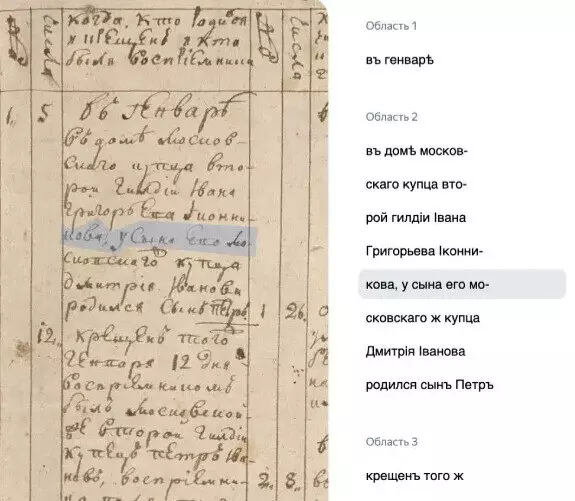 Когда, кто родился
и крещенъ и кто
были восприемники
числа
числа
1
5
въ генварѣ
въ домѣ москов-
скаго купца вто-
рой гилдіи Ивана
Григорьева Іконни-
кова, у сына его мо-
сковскаго ж купца
Дмитрія Іванова
родился сынъ Петръ
1
26
12
крещенъ того ж
генваря 12 дня
восприемникомъ
былъ московской
второй гилдіи
купецъ Петръ Ива-
новъ, восприемни-
2
8
Область 1
въ генварѣ
Область 2
въ домѣ москов-
скаго купца вто-
рой гилдіи Івана
Григорьева Іконни-
кова, у сына его мо-
сковскаго ж купца
Дмитрія Іванова
родился сынъ Петръ
Область 3
крещенъ того ж